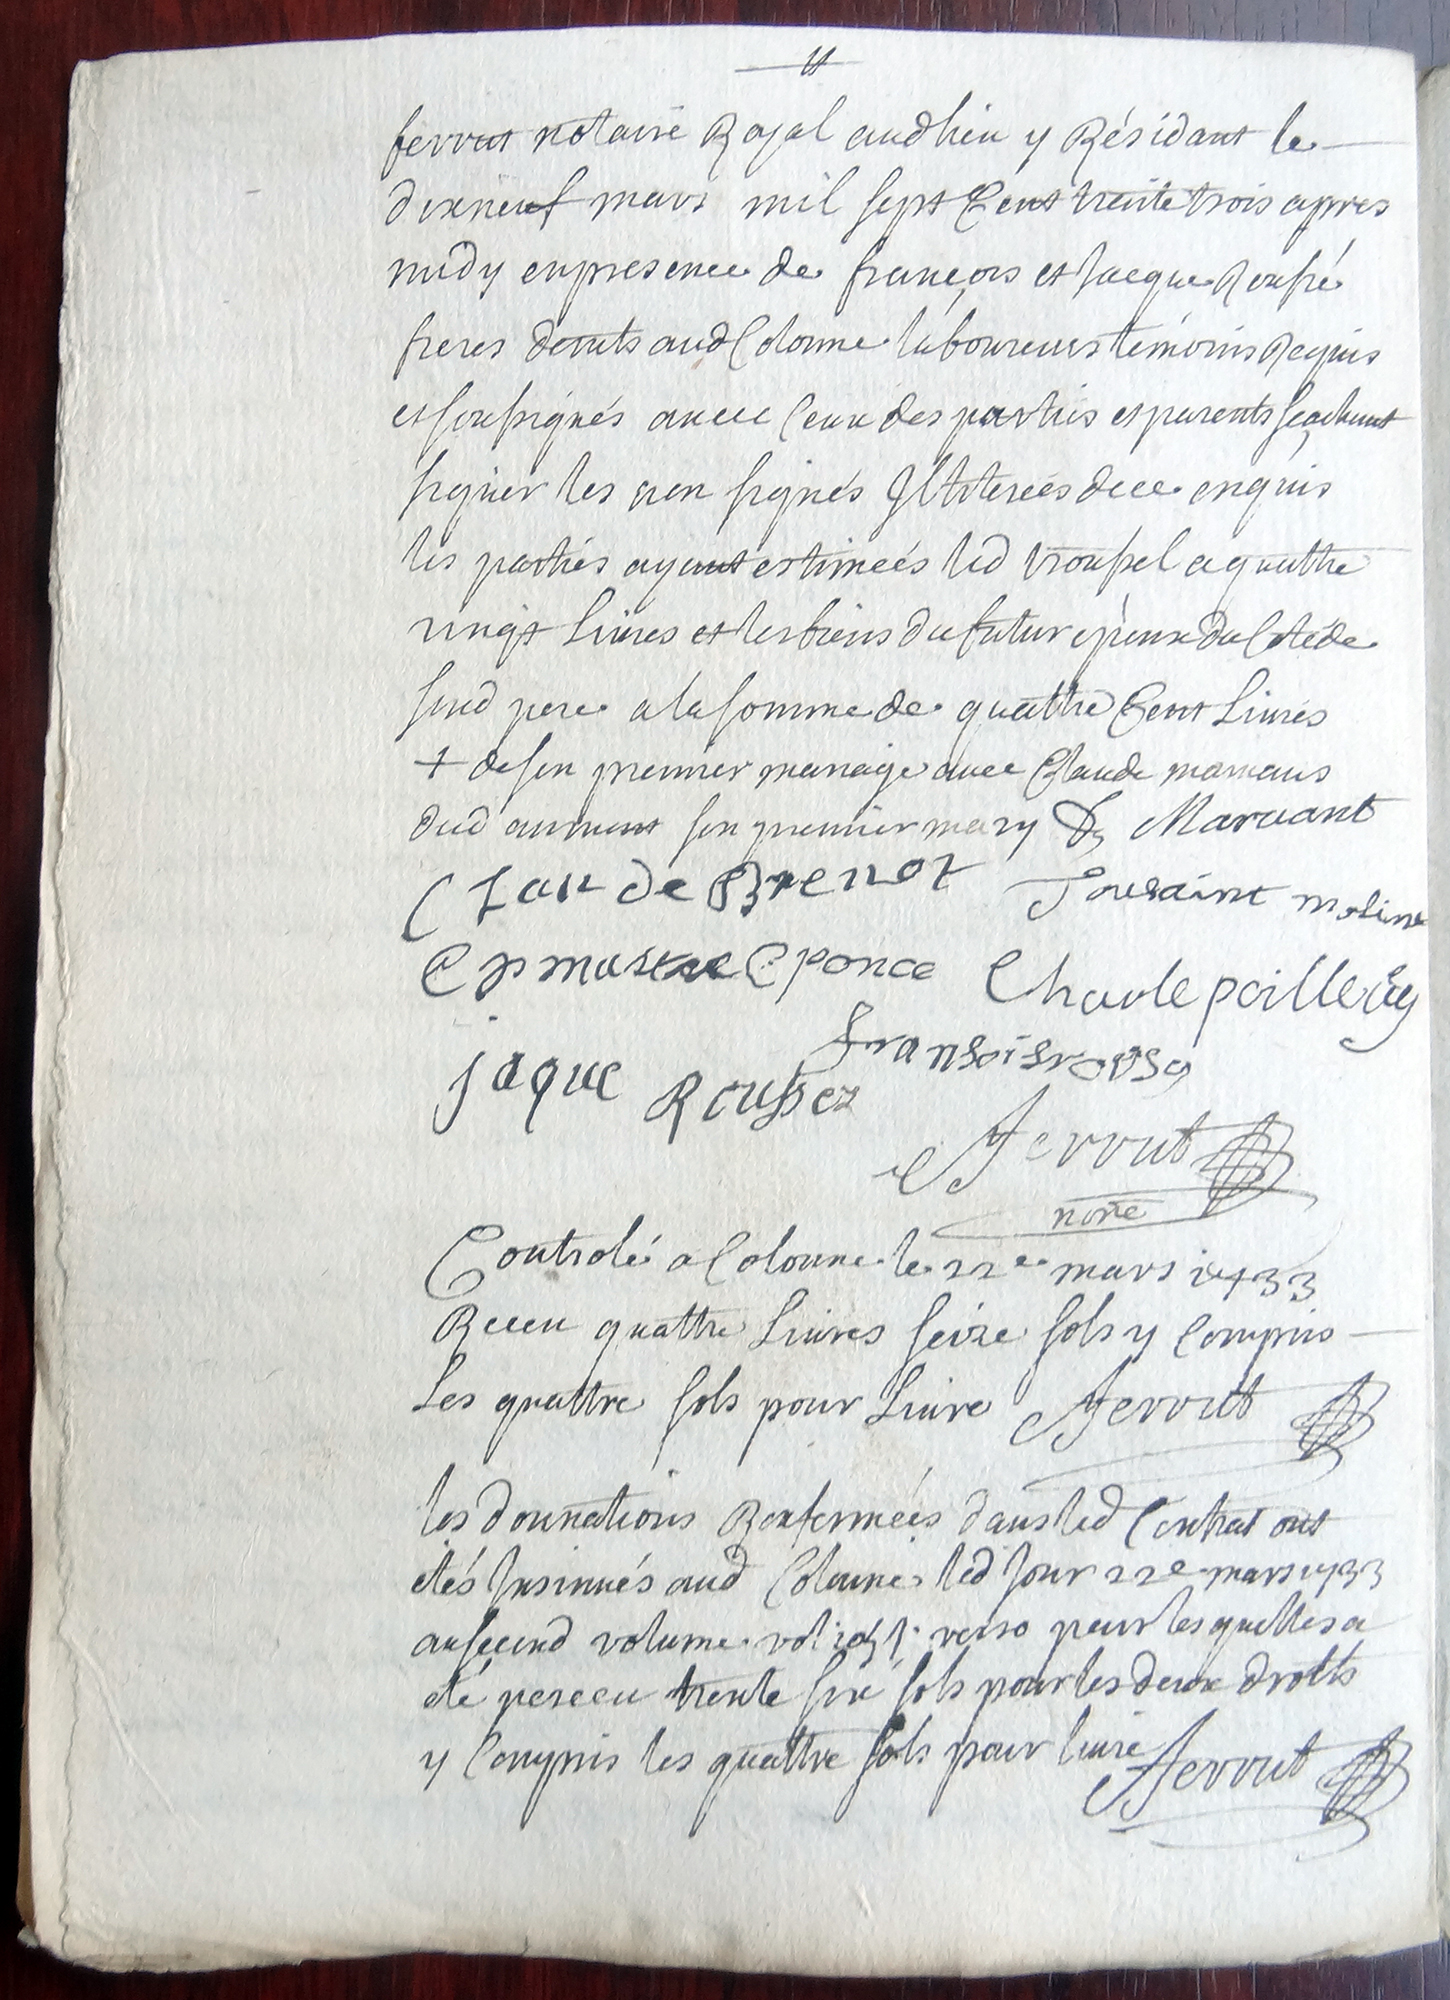 ferrut notaire Royal audlieu y Résidant le
dixneuf mars mil sept Cent trente trois apres
midy enpresence de françois et Jacque Rousé
freres demts aud Colonne laboureurs témoins Requis
et soussignés avec Ceux des parties et parents scachant
signer les non signés Illiterées dece enquis
les partiés ayant estimeés led troussel a quattre
vingt Livres et les biens du futur epoux du Coté de
sond pere a la somme de quattre Cent Livres
+ de son premier mariage avec Claude
dud son premier mary D Maruant
Clau de Brenot Tousaint moline
Eponce Charle poillevey
fransois rouse
jaque Roussez
Ferrut
nore
Controlé a Colonne le 22e mars 1733
Receu quattre Livres seize sols y Compris
Les quattre sols pour Livre Ferrut
les donnations Renfermeés dans led Contrat ont
etés Insinués aud Colonne led Jour 22e mars 1733
au second volume verso pour lesquelles a
eté perceu trente six sols pour les deux droits
y Compris les quattre sols pour livre Ferrut